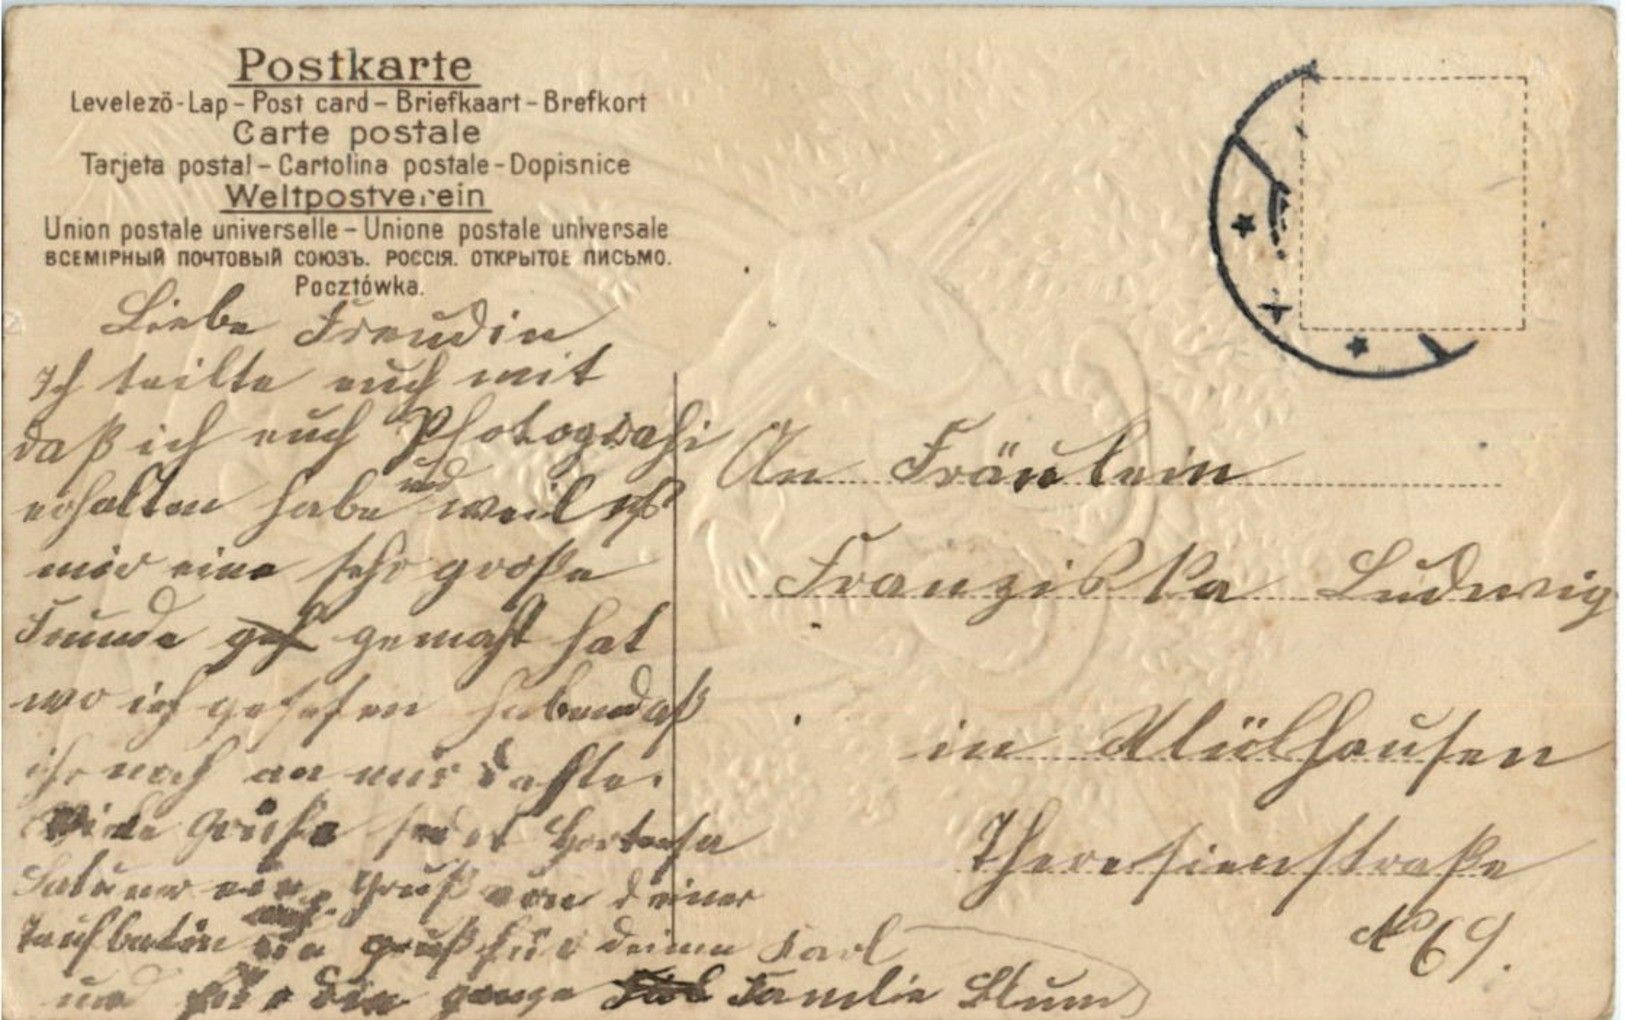 Postkarte
Levelező-Lap – Post card – Briefkaart – Brefkort
Carte postale
Tarjeta postal – Cartolina postale – Dopisnice
Weltpostverein
Union postale universelle – Unione postale universale
ВСЕМІРНЫЙ ПОЧТОВЫЙ СОЮЗЪ. РОССІЯ. ОТКРЫТОЕ ПИСЬМО.
Pocztówka.
Liebe Freudin
Ich teilte euch mit
daß ich euch Photograhi
erhalten habe und weil es
mir eine sehr große
Freunde gemacht hat
wo ich gesehen haben daß
ihr noch an mir dachte.
Viele Grüße sendet Hortensa
ein Gruß von deiner
ein gruß für deinen Karl
und für die ganze Familie Blum
An Fräulein
Franziska Ludwig
in Mülhausen
Theresienstraße
No 69.